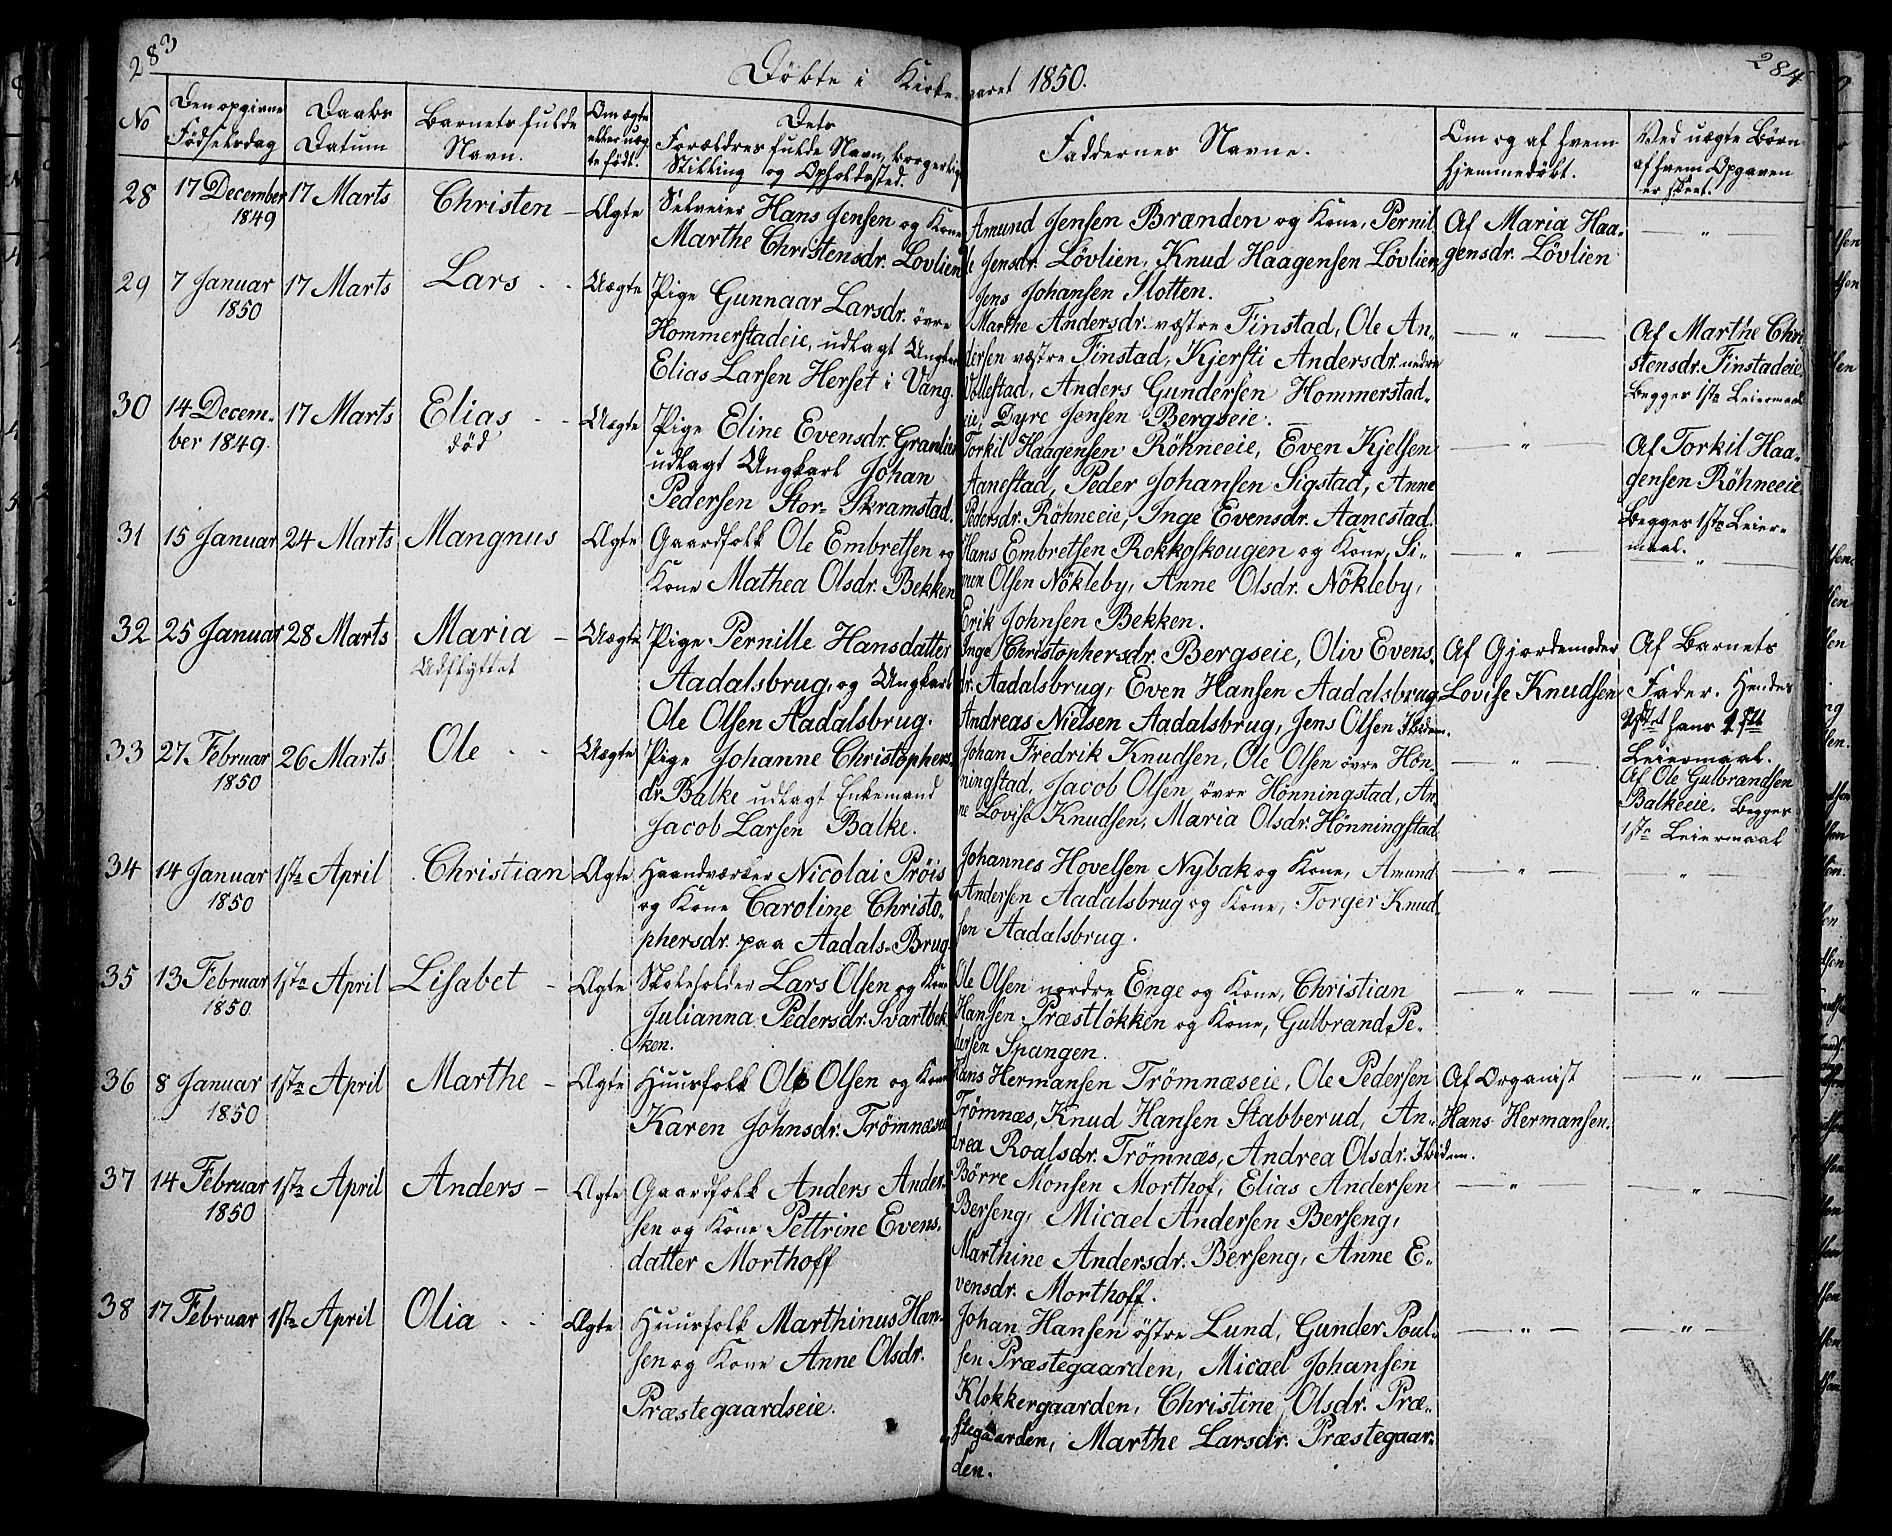 283
284
Døbte i Kirke-aaret 1850.
No
Den opgivne Fødselsdag
Daabs Datum
Barnets fulde Navn.
Om ægte eller uægte født.
Dets Forældres fulde Navn, borgerlig Stilling og Opholdssted.
Faddernes Navne.
Om og af hvem hjemmedøbt.
Ved uægte Børn af hvem Opgaven er skeet.
28
17 December 1849
17 Marts
Christen –
Ægte
Selveier Hans Jensen og Kone
Marthe Christensdr. Lövlien
Amund Jensen Brænden og Kone, Pernil-
le Jensdr. Lövlien, Knud Haagensen Lövlien,
Jens Johansen Slotten.
Af Maria Haa-
gensdr. Lövlien
— " —
29
7 Januar 1850
17 Marts
Lars - -
Uægte
Pige Gunnaar Larsdr. övre
Hommerstadeie, udlagt Ungkarl
Elias Larsen Herset i Vang.
Marthe Andersdr. væstre Finstad, Ole An-
dersen væstre Finstad, Kjersti Andersdr. nedre
Vollestad, Anders Gundersen Hommerstad-
eie, Dyre Jensen Bergseie.
— " —
Af Marthe Chri-
stensdr. Finstadeie.
Begges 1ste Leiermaal
30
14 Decem-
ber 1849.
17 Marts
Elias - -
død
Uægte
Pige Eline Evensdr. Granlien
udlagt Ungkarl Johan
Pedersen Stor-Skramstad.
Torkil Haagensen Röhneeie, Even Kjelsen
Aanestad, Peder Johansen Sigstad, Anne
Pedersdr. Röhneeie, Inge Evensdr. Aanestad.
— " —
Af Torkil Haa-
gensen Röhneeie
Begges 1ste Leier-
maal.
31
15 Januar
24 Marts
Mangnus
Ægte
Gaardfolk Ole Embretsen og
Kone Mathea Olsdr. Bekken
Hans Embretsen Rokkoskougen og Kone, Si-
men Olsen Nökleby, Anne Olsdr. Nökleby,
Erik Johnsen Bekken.
— " —
— " —
32
25 Januar
28 Marts
Maria –
Udflyttet
Uægte
Pige Pernille Hansdatter
Aadalsbrug, og Ungkarl
Ole Olsen Aadalsbrug.
Inge Christophersdr. Bergseie, Oliv Evens-
dr. Aadalsbrug, Even Hansen Aadalsbrug
Andreas Nielsen Aadalsbrug, Jens Olsen Ibidem.
Af Gjordemoder
Lovise Knudsen
Af Barnets
Fader. Hendes
hans 1ste
Leiermaal.
33
27 Februar 1850
26 Marts
Ole - -
Uægte
Pige Johanne Christophers-
dr. Balke udlagt Enkemand
Jacob Larsen Balke.
Johan Fredrik Knudsen, Ole Olsen övre Hön-
ningstad, Jacob Olsen övre Hönningstad, An-
ne Lovise Knudsen, Maria Olsdr. Hönningstad
— " —
Af Ole Gulbrandsen
Balkeeie. Begges
1ste Leiermaal
34
14 Januar 1850
1ste April
Christian
Ægte
Haandværker Nicolai Pröis
og Kone Caroline Christo-
phersdr. paa Aadals-Brug
Johannes Hovelsen Nybak og Kone, Amund
Andersen Aadalsbrug og Kone, Torger Knud-
sen Aadalsbrug.
— " —
— " —
35
13 Februar 1850
1ste April
Lisabet –
Ægte
Skoleholder Lars Olsen og Kone
Julianna Pedersdr. Svartbek-
ken.
Ole Olsen nordre Enge og Kone, Christian
Hansen Præstlökken og Kone, Gulbrand Pe-
dersen Spangen.
— " —
— " —
36
8 Januar 1850
1ste April
Marthe –
Ægte
Huusfolk Ole Olsen og Kone
Karen Johnsdr. Trömnæseie
Hans Hermansen Trömnæseie, Ole Pedersen
Trömnæs, Knud Hansen Stabberud, An-
drea Roalsdr. Trömnæs, Andrea Olsdr. Ibidem.
Af Organist
Hans Hermansen.
— " —
37
14 Februar 1850
1ste April
Anders –
Ægte
Gaardfolk Anders Ander-
sen og Kone Pettrine Evens-
datter Morthoff
Börre Monsen Morthof, Elias Andersen
Berseng, Micael Andersen Berseng,
Marthine Andersdr. Berseng, Anne E-
vensdr. Morthoff.
— " —
— " —
38
17 Februar
1ste April
Olia - -
Ægte
Huusfolk Marthinus Han-
sen og Kone Anne Olsdr.
Præstegaardseie.
Johan Hansen östre Lund, Gunder Poul-
sen Præstegaarden, Micael Johansen
Klokkergaarden, Christine Olsdr. Præ-
stegaarden, Marthe Larsdr. Præstegaar-
den.
— " —
— " —